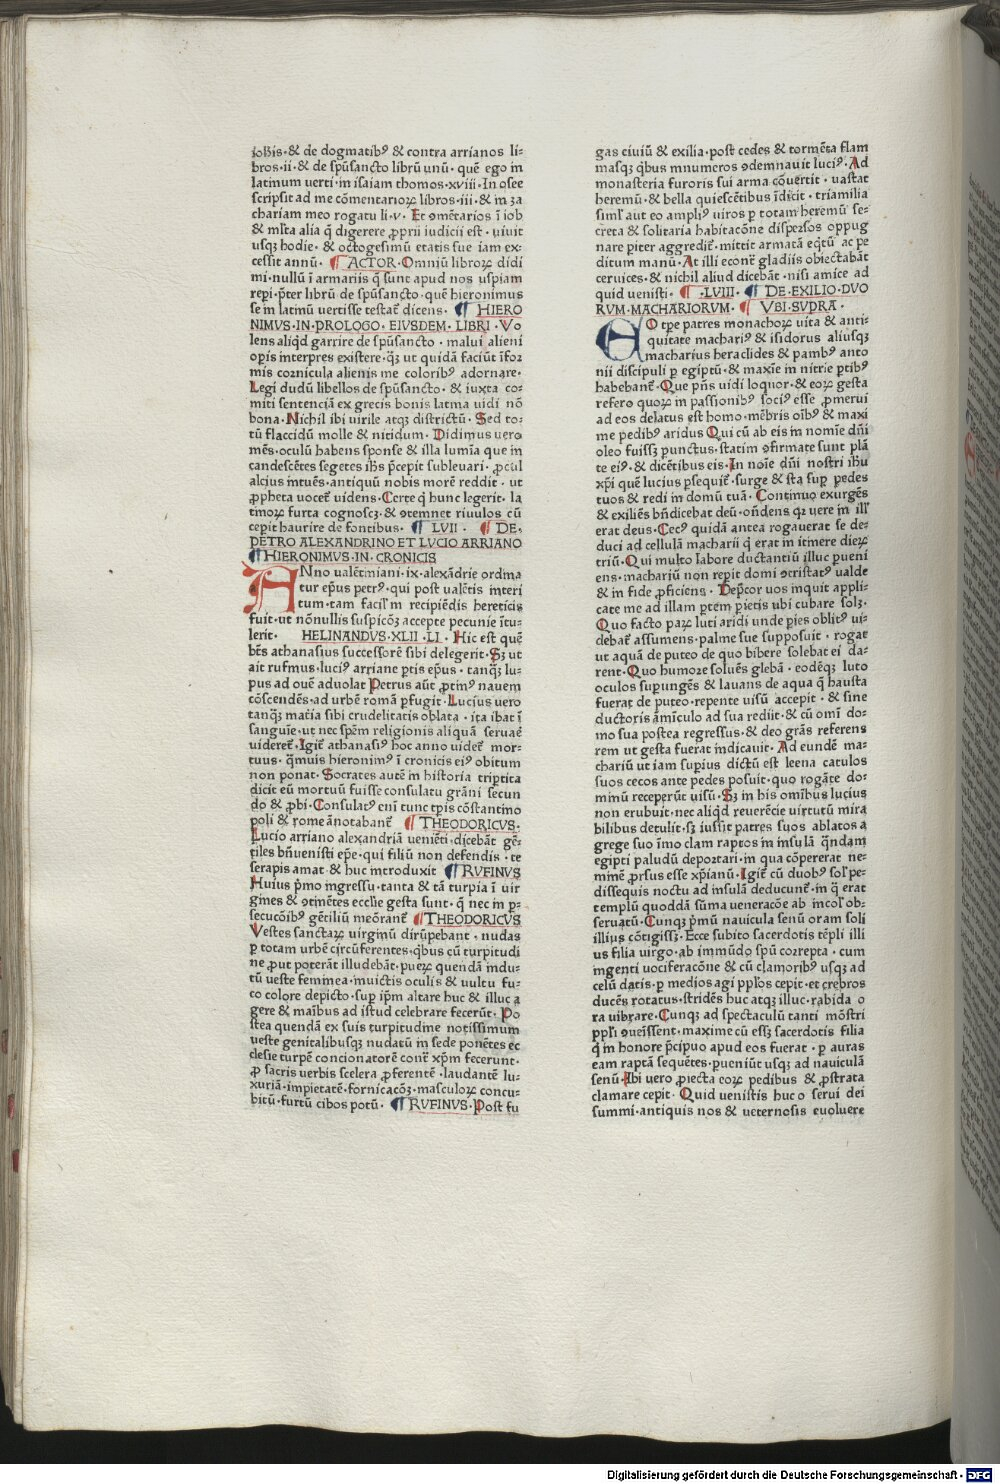 ioh̄is·& de dogmatibꝰ & contra arrianos li-
bros·ii·& de sp̄usancto librū unū· quē ego in
latinum uerti·in isaiam thomos·xviii·In osee
scripsit ad me cōmentarioꝝ libros·iii·& in za
chariam meo rogatu li·v· Et ꝯmētarios ī iob
& ml̄ta alia q̄ digerere ꝓprii iudicii est·uiuit
usqꝫ hodie·& octogesimū etatis sue iam ex-
cessit annū· ¶ ACTOR·Omniū libroꝝ didi
mi·nullū ī armariis q̄ sunt apud nos uspiam
reperi·p̄ter librū de sp̄usancto·quē hieronimus
se in latinū uertisse testat̄ dicens· ¶ HIERO
NIMVS·IN·PROLOGO·EIVSDEM·LIBRI·Vo
lens aliqd̄ garrire de sp̄usancto·malui alieni
op̄is interpres existere·qꝫ ut quidā faciūt īfor
mis cornicula alienis me coloribꝰ adornare·
Legi dudū libellos de sp̄usancto·& iuxta co-
miti sentenciā ex grecis bonis latina uidi nō
bona·Nichil ibi uirile atqꝫ districtū·Sed to-
tū flaccidū molle & nitidum·Didimus uero
mēs·oculū habens sponse & illa lumīa que in
candescētes segetes ih̄s p̄cepit subleuari·ꝓcul
alcius intuēs·antiquū nobis morē reddit·ut
ꝓpheta uocet̄ uidens·Certe q̄ hunc legerit·la
tinoꝝ furta cognoscꝫ·& ꝯtemnet riuulos cū
cepit haurire de fontibus· ¶ LVII· ¶ DE·
PETRO ALEXANDRINO ET LVCIO ARRIANO
¶ HIERONIMVS·IN·CRONICIS
ANno ualētiniani·ix·alexādrie ordina
tur ep̄us petrꝰ·qui post ualētis interi
tum·tam facil̄ in recipiēdis hereticis
fuit·ut nōnullis suspicōꝫ accepte pecunie ītu-
lerit· HELINANDVS·XLII·LI·Hic est quē
bt̄s athanasius successorē sibi delegerit·Sꝫ ut
ait rufinus·luciꝰ arriane ꝑtis ep̄us·tanqꝫ lu-
pus ad ouē aduolat Petrus aūt ꝓtinꝰ nauem
cōscendēs·ad urbē romā ꝑfugit·Lucius uero
tanqꝫ mat̄ia sibi crudelitatis oblata·ita ibat ī
sanguīe·ut nec spēm religionis aliquā seruaē
uideret̄·Igit̄ athanasiꝰ hoc anno uidet̄ mor-
tuus·q̄muis hieronimꝰ ī cronicis eiꝰ obitum
non ponat·Socrates autē in historia tripertita
dicit eū mortuū fuisse consulatu grāni secun
do & ꝓbi·Consulatꝰ enī tunc tꝑis cōstantino
poli & rome ānotabant̄ ¶ THEODORICVS·
Lucio arriano alexandriā ueniēti·dicebāt gē-
tiles bn̄uenisti ep̄e·qui filiū non defendis·te
serapis amat·& huc introduxit ¶ RVFINVS
Huius p̄mo ingressu·tanta & tā turpia ī uir
gines & ꝯtinētes ecclie gesta sunt·q̄ nec in ꝑ-
secucōibꝰ gētiliū meōrant̄ ¶ THEODORICVS
Vestes sanctaꝝ uirginū dirūpebant·nudas
ꝑ totam urbē circūferentes·qbꝰ cū turpitudi
ne ꝓut poterāt illudebāt·pueꝝ quendā indu-
tū ueste feminea·inuictis oculis & uultu fu-
co colore depicto·sup̄ ip̄m altare huc & illuc a
gere & maībus ad istud celebrare fecerūt·Po
stea quendā ex suis turpitudine notissimum
ueste genitalibusqꝫ nudatū in sede ponētes ec
clesie turpē concionatorē cont̄ xp̄m fecerunt·
ꝓ sacris uerbis scelera ꝓferentē·laudantē lu-
xuriā·impietatē·fornicacōꝫ·masculoꝝ concu-
bitū·furtū cibos potū· ¶ RVFINVS·Post fu
gas ciuiū & exilia·post cedes & tormēta flam
masqꝫ qbꝰ innumeros ꝯdemnauit luciꝰ·Ad
monasteria furoris sui arma cōuertit·uastat
heremū·& bella quiescētibus īdicit·triamilia
siml̄ aut eo ampliꝰ uiros ꝑ totam heremū se-
creta & solitaria habitacōne disꝑsos oppug
nare pīter aggredit̄·mittit armatā eqt̄ū ac pe
ditum manū·At illi econt̄ gladiis obiectabāt
ceruices·& nichil aliud dicebāt·nisi amice ad
quid uenisti· ¶ ·LVIII· ¶ DE·EXILIO·DVO
RVM·MACHARIORVM· ¶ VBI·SVPRA·
EO tꝑe patres monachoꝝ uita & anti-
quitate machariꝰ & isidorus aliusqꝫ
macharius heraclides & pambꝰ anto
nii discipuli ꝑ egiptū·& maxīe in nitrie ꝑtibꝰ
habebant̄·Que pn̄s uidi loquor·& eoꝝ gesta
refero quoꝝ in passionibꝰ sociꝰ esse ꝓmerui
ad eos delatus est homo·mēbris oībꝰ & maxi
me pedibꝰ aridus Qui cū ab eis in nomīe dn̄i
oleo fuissꝫ punctus·statim ꝯfirmate sunt plā
te eiꝰ·& dicētibus eis·In noīe dn̄i nostri ih̄u
xp̄i quē lucius ꝑsequit̄·surge & sta sup̄ pedes
tuos & redi in domū tuā·Continuo exurgēs
& exiliēs bn̄dicebat deū·on̄dens qꝛ uere in ill̄
erat deus·Cecꝰ quidā antea rogauerat se de-
duci ad cellulā macharii q̄ erat in itinere dieꝝ
triū·Qui multo labore ductantiū illuc pueni
ens·machariū non rep̄it domi ꝯcristatꝰ ualde
& in fide ꝓficiens·Dep̄cor uos inquit appli-
cate me ad illam ꝑtem pīetis ubi cubare solꝫ·
Quo facto paꝝ luti aridi unde pīes oblitꝰ ui-
debat̄ assumens·palme sue supposuit·rogat
ut aquā de puteo de quo bibere solebat ei da-
rent·Quo humore soluēs glebā·eodēqꝫ luto
oculos supungēs & lauans de aqua q̄ hausta
fuerat de puteo·repente uisū accepit·& sine
ductoris āminiculo ad sua rediit·& cū omī do-
mo sua postea regressus·& deo grās referens
rem ut gesta fuerat indicauit·Ad eundē ma-
chariū ut iam superius dictū est leena catulos
suos cecos ante pedes posuit·quo rogāte do-
minū receperūt uisū·Sꝫ in his om̄ibus lucius
non erubuit·nec aliqd̄ reuerēcie uirtutū mira
bilibus detulit·sꝫ iussit patres suos ablatos a
grege suo īmo clam raptos in insulā q̄ndam
egipti paludū deportari·in qua cōpererat ne-
minē ꝓrsus esse xp̄ianū·Igit̄ cū duobꝰ sol̄ pe-
dissequis noctu ad insulā deducunt̄·in q̄ erat
templū quoddā sūma ueneracōe ab incol̄ ob-
seruatū·Cunqꝫ p̄mū nauicula senū oram soli
illius cōtigissꝫ·Ecce subito sacerdotis tēpli illi
us filia uirgo·ab immūdo sp̄u correpta·cum
ingenti uociferacōne & cū clamoribꝰ usqꝫ ad
celū datis·ꝑ medios agi pplōs cepit·et crebros
ducēs rotatus·stridēs huc atqꝫ illuc·rabida o
ra uibrare·Cunqꝫ ad spectaculū tanti mōstri
ppl̄i ꝯueissent·maxime cū essꝫ sacerdotis filia
q̄ in honore p̄cipuo apud eos fuerat·ꝑ auras
eam raptā sequētes·pueniūt usqꝫ ad nauiculā
senū·Ibi uero ꝓiecta eoꝝ pedibus & ꝓstrata
clamare cepit·Quid uenistis huc o serui dei
summi·antiquis nos & ueternosis euoluere
Digitalisierung gefördert durch die Deutsche Forschungsgemeinschaft - DFG